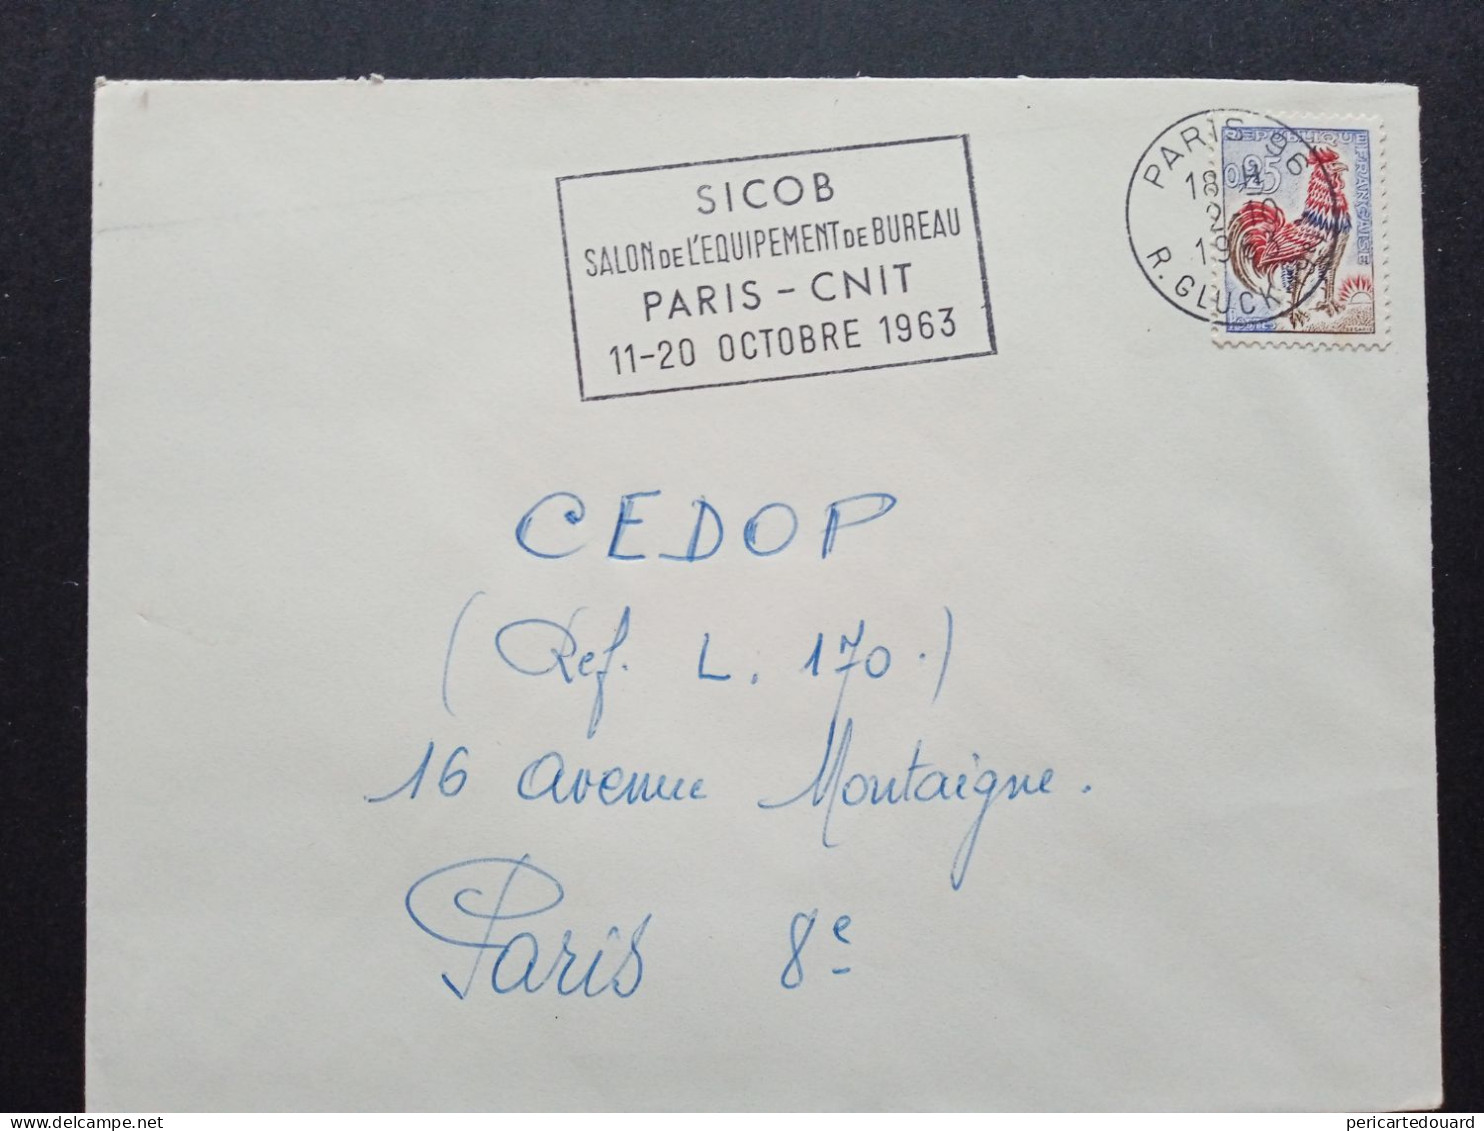 SICOB
SALON DE L'EQUIPEMENT DE BUREAU
PARIS - CNIT
11-20 OCTOBRE 1963
PARIS 96
18 H
R. GLUCK
REPUBLIQUE FRANÇAISE
0,25
CEDOP
(Ref. L. 170.)
16 avenue Montaigne.
Paris 8e
delcampe.net
pericartedouard